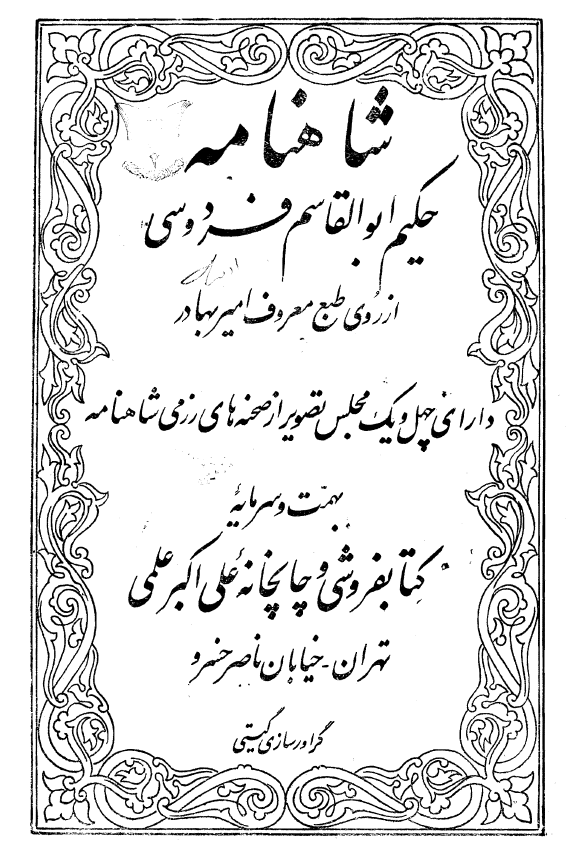 شاهنامه
حکیم ابوالقاسم فردوسی
از روی طبع معروف امیر بهادر
دارای چهل و یک مجلس تصویر از صحنه های رزمی شاهنامه
بهمت و سرمایهٔ
کتابفروشی و چاپخانهٔ علی اکبر علمی
تهران - خیابان ناصر خسرو
گراورسازی گیتی